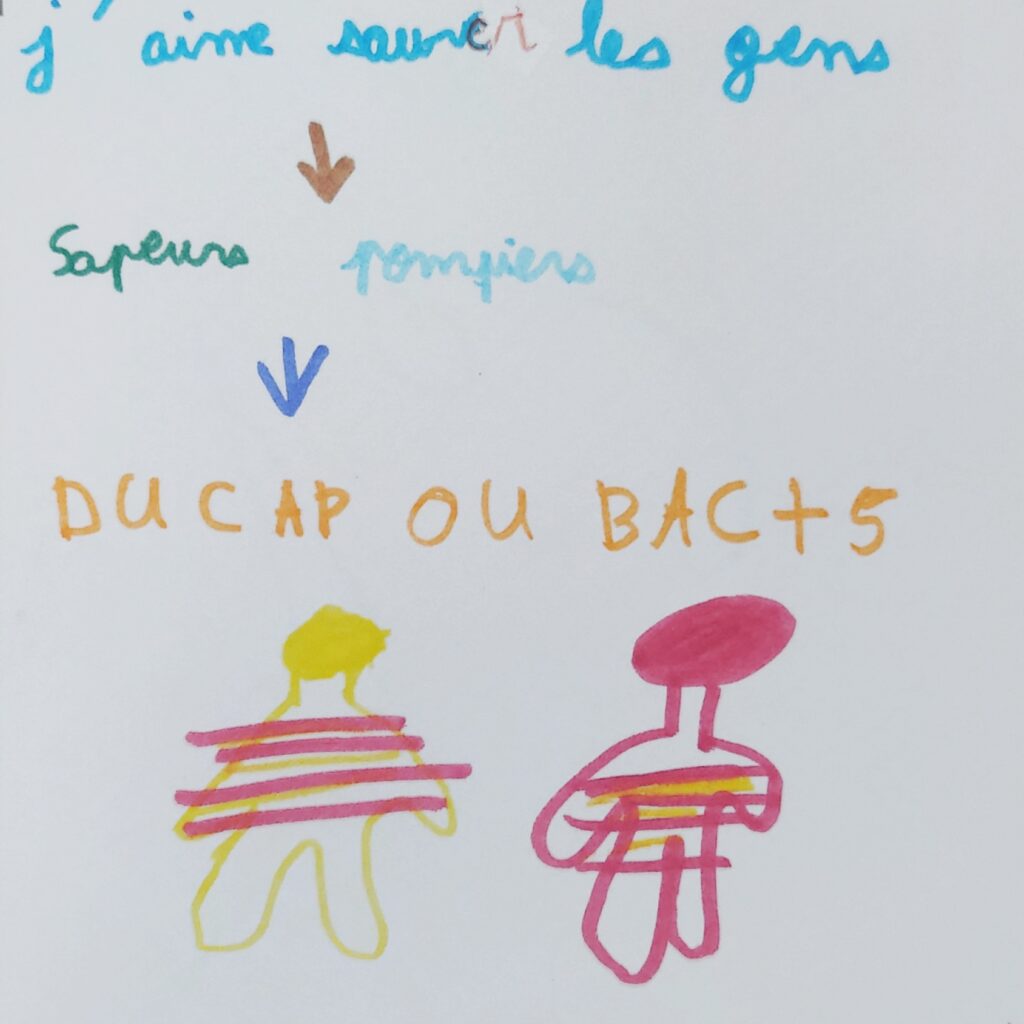 j'aime sauver les gens
Sapeurs pompiers
DU CAP OU BAC+5